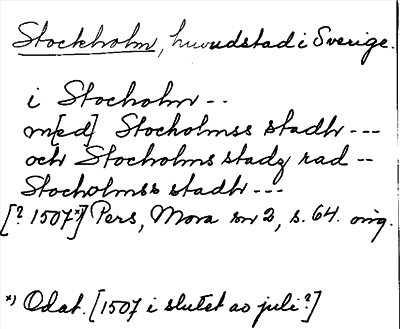 Stockholm, huvudstad i Sverige.
i Stocholm --
m[ed] Stocholmss stadh ---
och Stocholms stadz rad --
Stocholmss stadh ---
[? 1507*)] Pers, Mora nr 2, s. 64. orig.
*) Odat. [1507 i slutet av juli?]